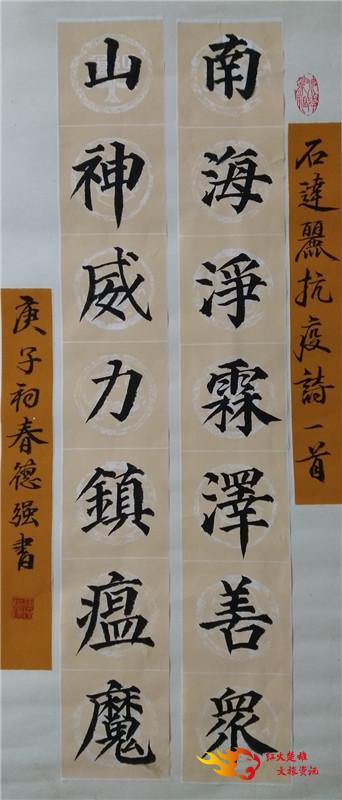 石蓮麗抗疫詩一首
南海淨霖澤善眾
山神威力鎮瘟魔
庚子初春德强書
红火楚雄
文旅资讯